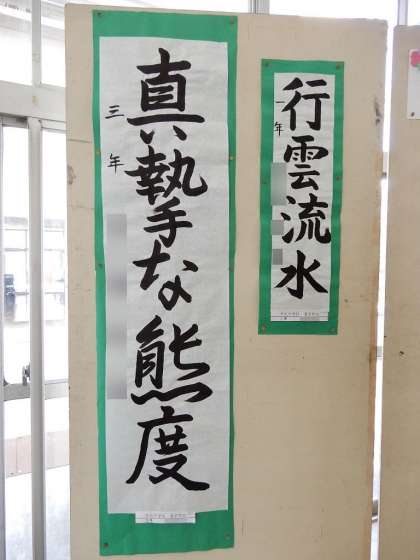 行雲流水
一年
真摯な態度
三年